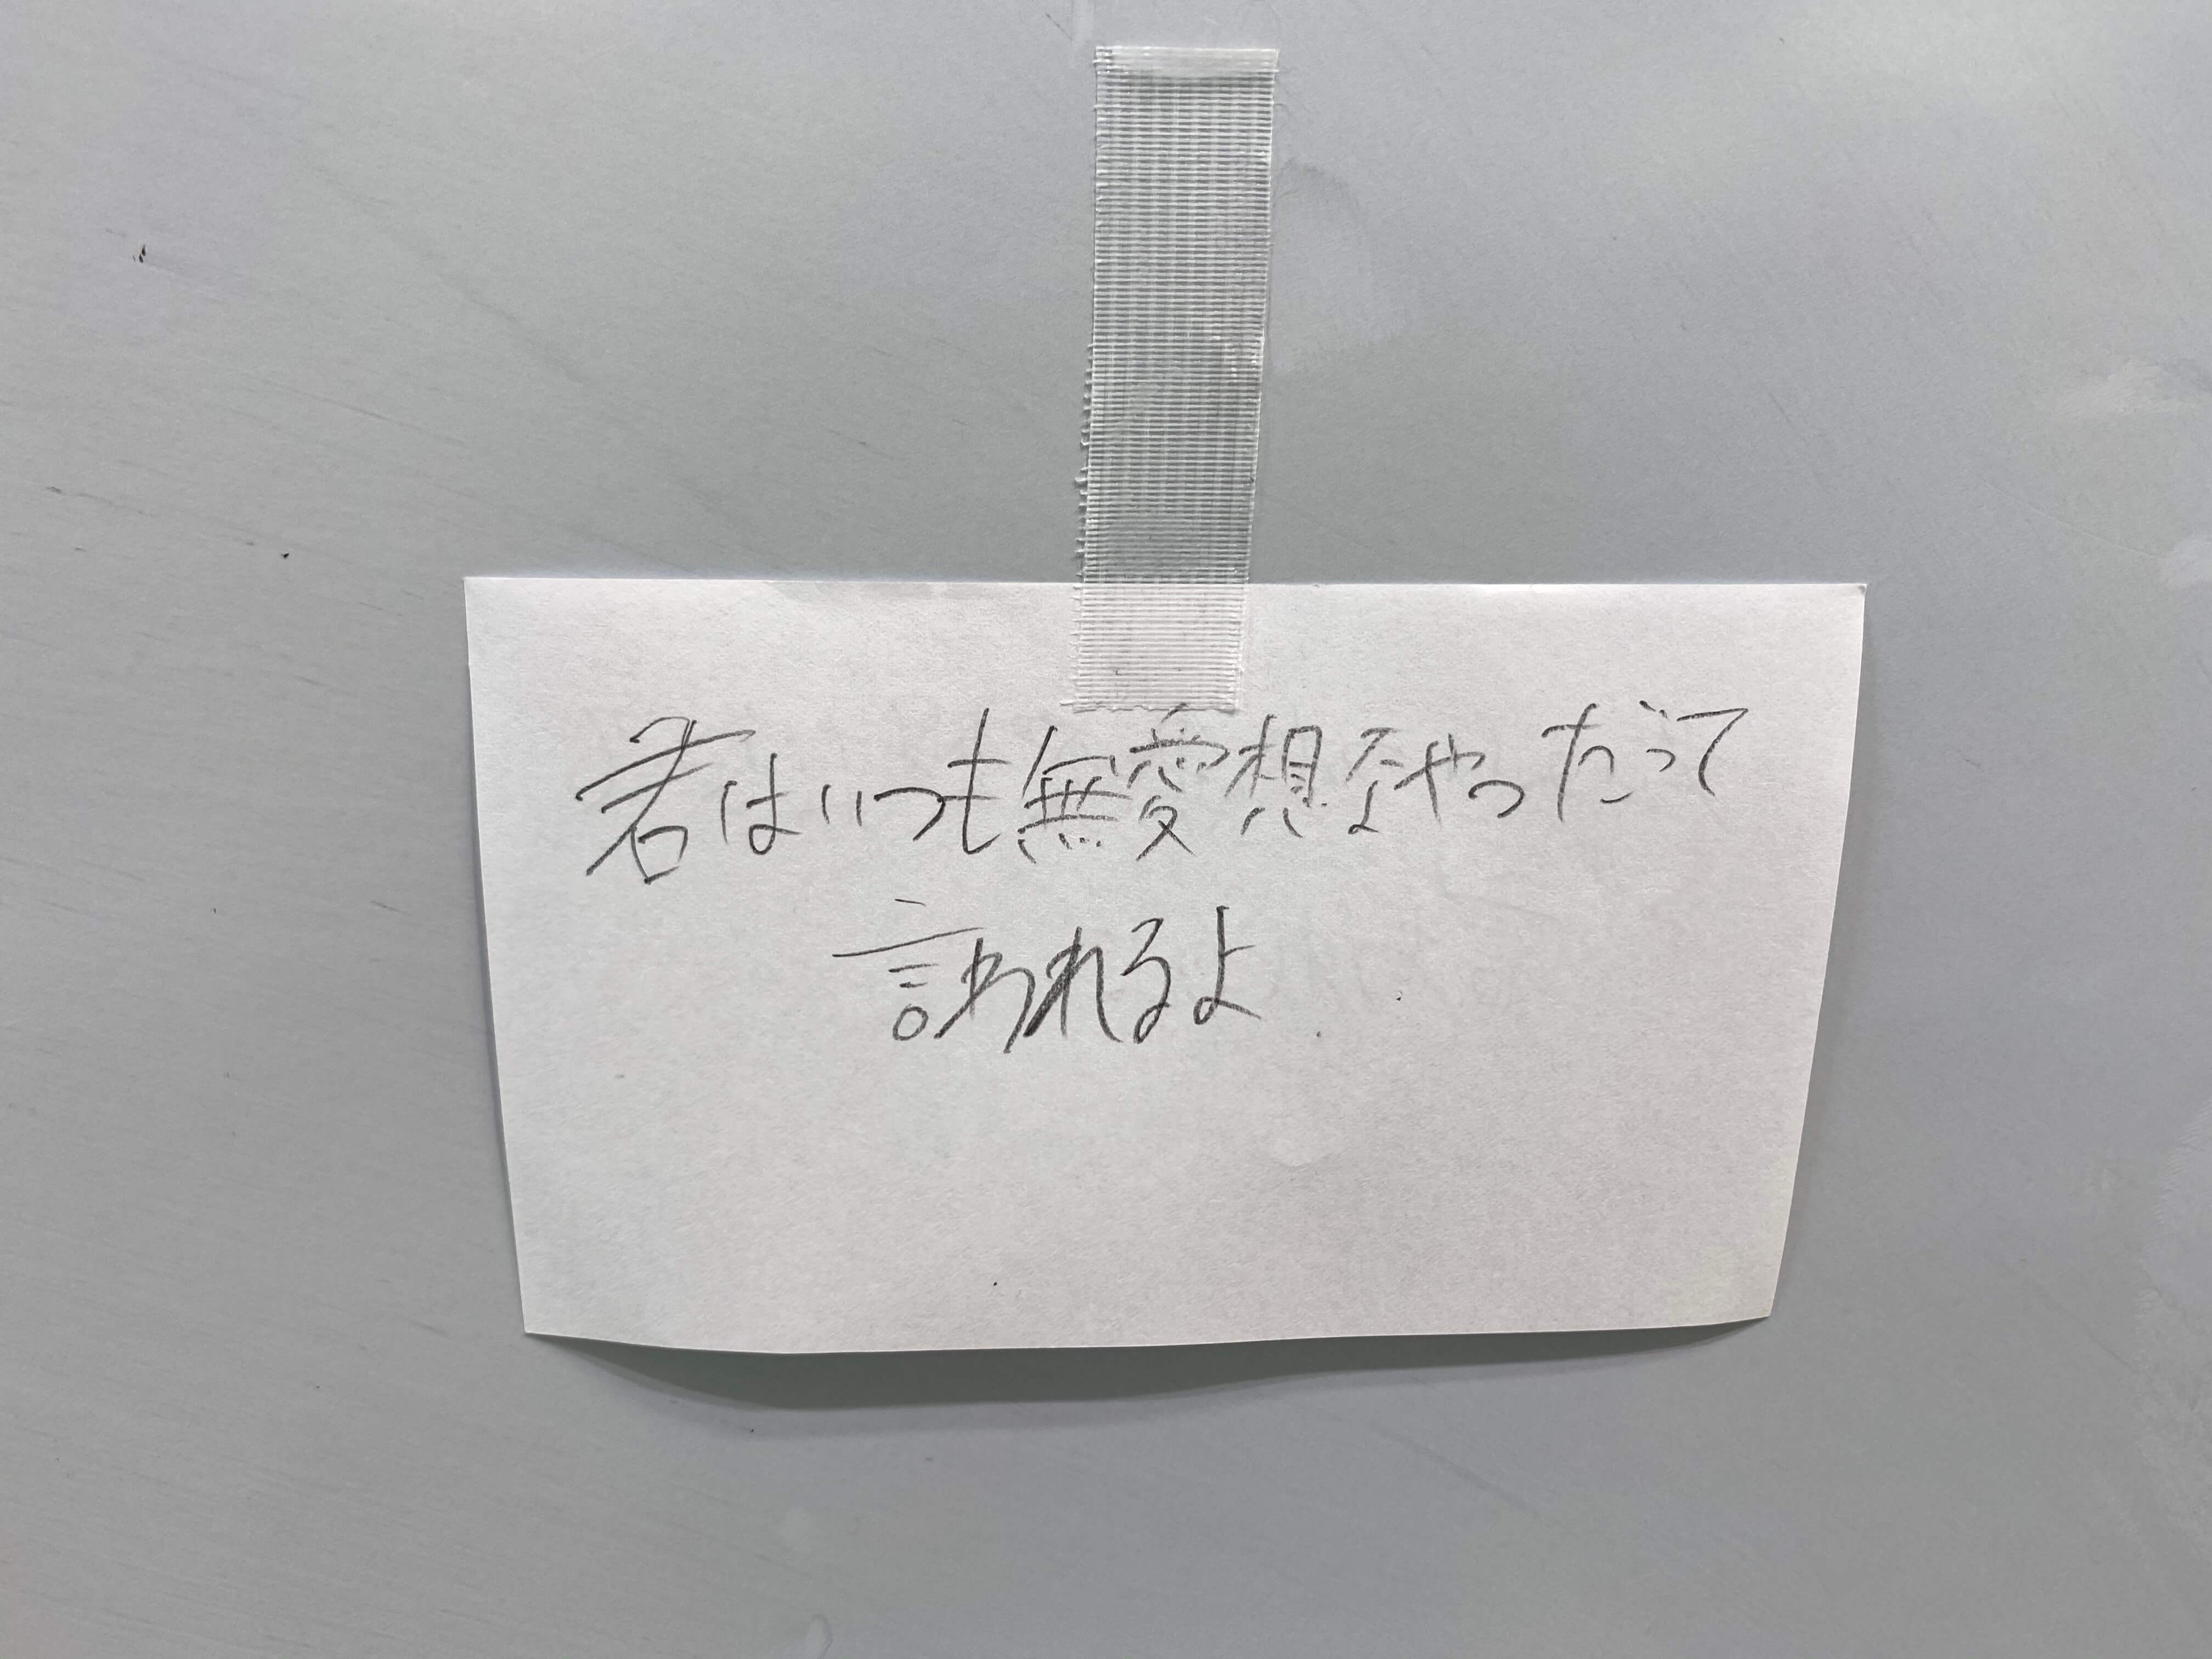 君はいつも無愛想なやつだって
言われるよ